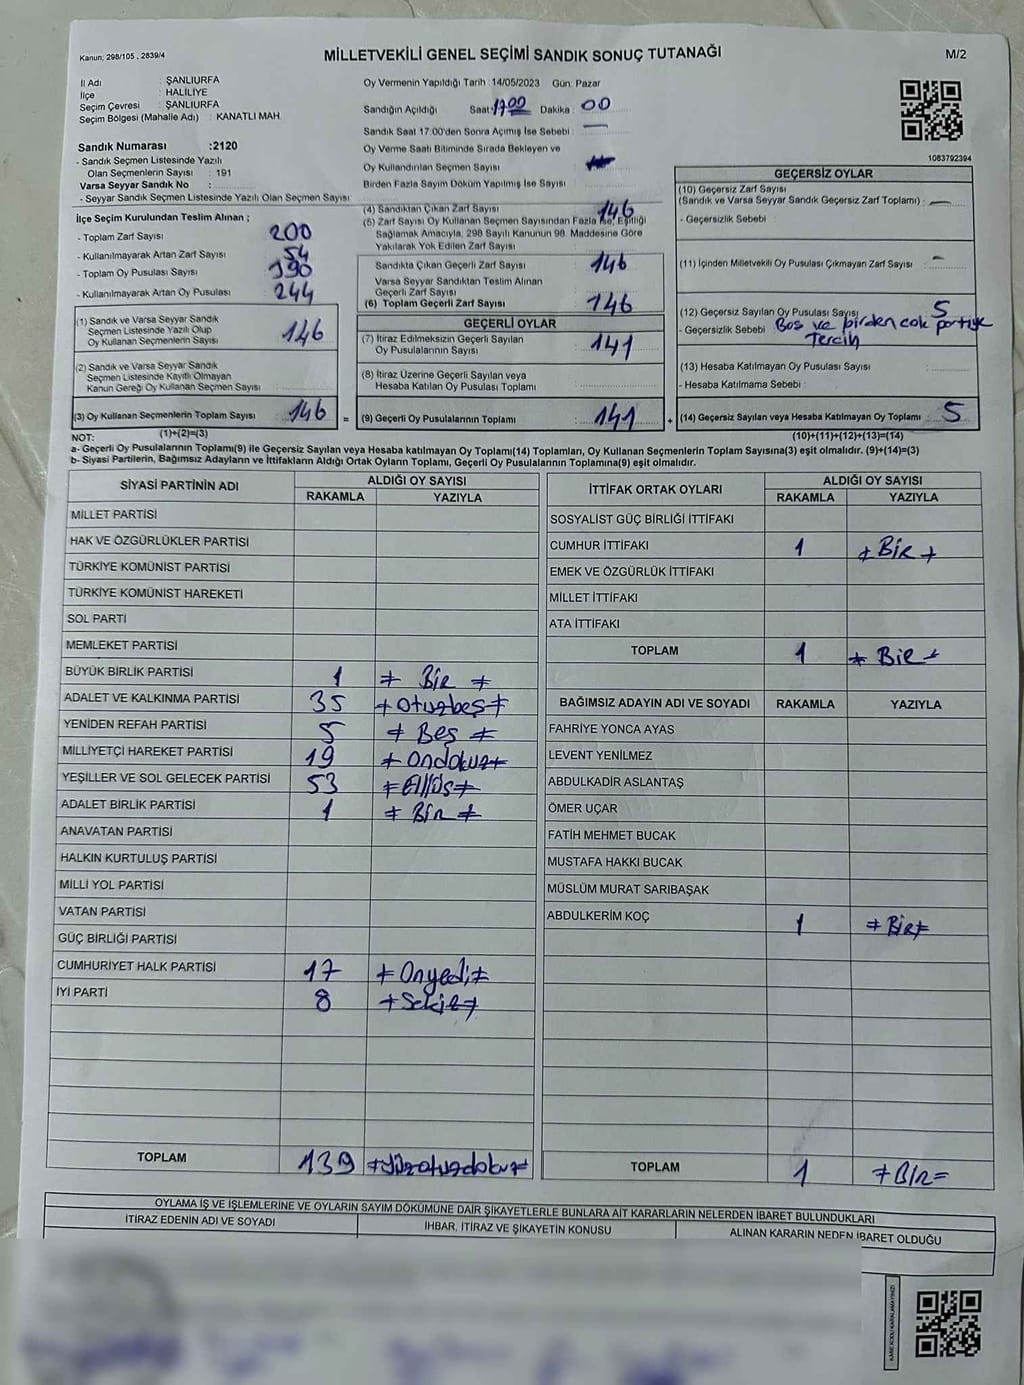 Kanun, 298/105 , 2839/4
MİLLETVEKİLİ GENEL SEÇİMİ SANDIK SONUÇ TUTANAĞI
M/2
İl Adı : ŞANLIURFA
İlçe : HALİLİYE
Seçim Çevresi : ŞANLIURFA
Seçim Bölgesi (Mahalle Adı) : KANATLI MAH.
Sandık Numarası :2120
- Sandık Seçmen Listesinde Yazılı
Olan Seçmenlerin Sayısı : 191
Varsa Seyyar Sandık No :
- Seyyar Sandık Seçmen Listesinde Yazılı Olan Seçmen Sayısı
Oy Vermenin Yapıldığı Tarih : 14/05/2023 Gün: Pazar
Sandığın Açıldığı Saat: 17.00 Dakika : 00
Sandık Saat 17.00'den Sonra Açımış İse Sebebi : —
Oy Verme Saati Bitiminde Sırada Bekleyen ve
Oy Kullandırılan Seçmen Sayısı
Birden Fazla Sayım Döküm Yapılmış İse Sayısı :
1083792394
İlçe Seçim Kurulundan Teslim Alınan ;
- Toplam Zarf Sayısı 200
- Kullanılmayarak Artan Zarf Sayısı 54
- Toplam Oy Pusulası Sayısı 390
- Kullanılmayarak Artan Oy Pusulası 244
(1) Sandık ve Varsa Seyyar Sandık
Seçmen Listesinde Yazılı Olup
Oy Kullanan Seçmenlerin Sayısı 146
(2) Sandık ve Varsa Seyyar Sandık
Seçmen Listesinde Kayıtlı Olmayan
Kanun Gereği Oy Kullanan Seçmen Sayısı
(3) Oy Kullanan Seçmenlerin Toplam Sayısı 146 =
(1)+(2)=(3)
(4) Sandıktan Çıkan Zarf Sayısı 146
(5) Zarf Sayısı Oy Kullanan Seçmen Sayısından Fazla İse, Eşitliği
Sağlamak Amacıyla, 298 Sayılı Kanunun 98. Maddesine Göre
Yakılarak Yok Edilen Zarf Sayısı :
Sandıkta Çıkan Geçerli Zarf Sayısı 146
Varsa Seyyar Sandıktan Teslim Alınan
Geçerli Zarf Sayısı
(6) Toplam Geçerli Zarf Sayısı 146
GEÇERLİ OYLAR
(7) İtiraz Edilmeksizin Geçerli Sayılan
Oy Pusulalarının Sayısı 141
(8) İtiraz Üzerine Geçerli Sayılan veya
Hesaba Katılan Oy Pusulası Toplamı
(9) Geçerli Oy Pusulalarının Toplamı 141 +
GEÇERSİZ OYLAR
(10) Geçersiz Zarf Sayısı
(Sandık ve Varsa Seyyar Sandık Geçersiz Zarf Toplamı) : —
- Geçersizlik Sebebi :
(11) İçinden Milletvekili Oy Pusulası Çıkmayan Zarf Sayısı : —
(12) Geçersiz Sayılan Oy Pusulası Sayısı 5
- Geçersizlik Sebebi Boş ve birden çok partiye
Tercih
(13) Hesaba Katılmayan Oy Pusulası Sayısı :
- Hesaba Katılmama Sebebi :
(14) Geçersiz Sayılan veya Hesaba Katılmayan Oy Toplamı 5
(10)+(11)+(12)+(13)=(14)
NOT:
a- Geçerli Oy Pusulalarının Toplamı(9) ile Geçersiz Sayılan veya Hesaba katılmayan Oy Toplamı(14) Toplamları, Oy Kullanan Seçmenlerin Toplam Sayısına(3) eşit olmalıdır. (9)+(14)=(3)
b- Siyasi Partilerin, Bağımsız Adayların ve İttifakların Aldığı Ortak Oyların Toplamı, Geçerli Oy Pusulalarının Toplamına(9) eşit olmalıdır.
SİYASİ PARTİNİN ADI ALDIĞI OY SAYISI
RAKAMLA YAZIYLA
MİLLET PARTİSİ
HAK VE ÖZGÜRLÜKLER PARTİSİ
TÜRKİYE KOMÜNİST PARTİSİ
TÜRKİYE KOMÜNİST HAREKETİ
SOL PARTİ
MEMLEKET PARTİSİ
BÜYÜK BİRLİK PARTİSİ 1 Bir
ADALET VE KALKINMA PARTİSİ 35 Otuzbeş
YENİDEN REFAH PARTİSİ 5 Beş
MİLLİYETÇİ HAREKET PARTİSİ 19 Ondokuz
YEŞİLLER VE SOL GELECEK PARTİSİ 53 Elliüş
ADALET BİRLİK PARTİSİ 1 Bir
ANAVATAN PARTİSİ
HALKIN KURTULUŞ PARTİSİ
MİLLİ YOL PARTİSİ
VATAN PARTİSİ
GÜÇ BİRLİĞİ PARTİSİ
CUMHURİYET HALK PARTİSİ 17 Onyedi
İYİ PARTİ 8 Sekiz
TOPLAM 139 Yüzotuzdokuz
İTTİFAK ORTAK OYLARI ALDIĞI OY SAYISI
RAKAMLA YAZIYLA
SOSYALİST GÜÇ BİRLİĞİ İTTİFAKI
CUMHUR İTTİFAKI 1 Bir
EMEK VE ÖZGÜRLÜK İTTİFAKI
MİLLET İTTİFAKI
ATA İTTİFAKI
TOPLAM 1 Bir
BAĞIMSIZ ADAYIN ADI VE SOYADI RAKAMLA YAZIYLA
FAHRİYE YONCA AYAS
LEVENT YENİLMEZ
ABDULKADİR ASLANTAŞ
ÖMER UÇAR
FATİH MEHMET BUCAK
MUSTAFA HAKKI BUCAK
MÜSLÜM MURAT SARIBAŞAK
ABDULKERİM KOÇ 1 Bir
TOPLAM 1 BİR
OYLAMA İŞ VE İŞLEMLERİNE VE OYLARIN SAYIM DÖKÜMÜNE DAİR ŞİKAYETLERLE BUNLARA AİT KARARLARIN NELERDEN İBARET BULUNDUKLARI
İTİRAZ EDENİN ADI VE SOYADI
İHBAR, İTİRAZ VE ŞİKAYETİN KONUSU
ALINAN KARARIN NEDEN İBARET OLDUĞU
KARE KODU KARALAMAYINIZ!